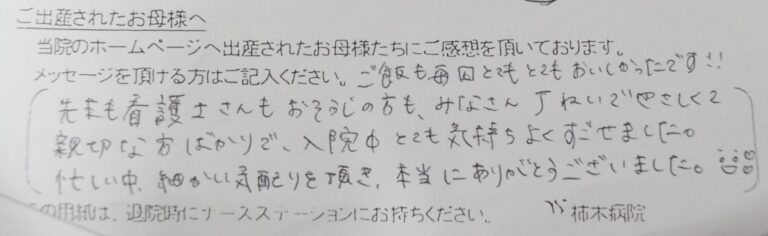 ご出産されたお母様へ
当院のホームページへ出産されたお母様たちにご感想を頂いております。
メッセージを頂ける方はご記入ください。ご飯も毎回とてもとてもおいしかったです!!
先生も看護士さんもおそうじの方も、みなさんていねいでやさしくて
親切な方ばかりで、入院中とても気持ちよくすごせました。
忙しい中、細かい気配りを頂き、本当にありがとうございました。
この用紙は、退院時にナースステーションにお持ちください。 柿木病院